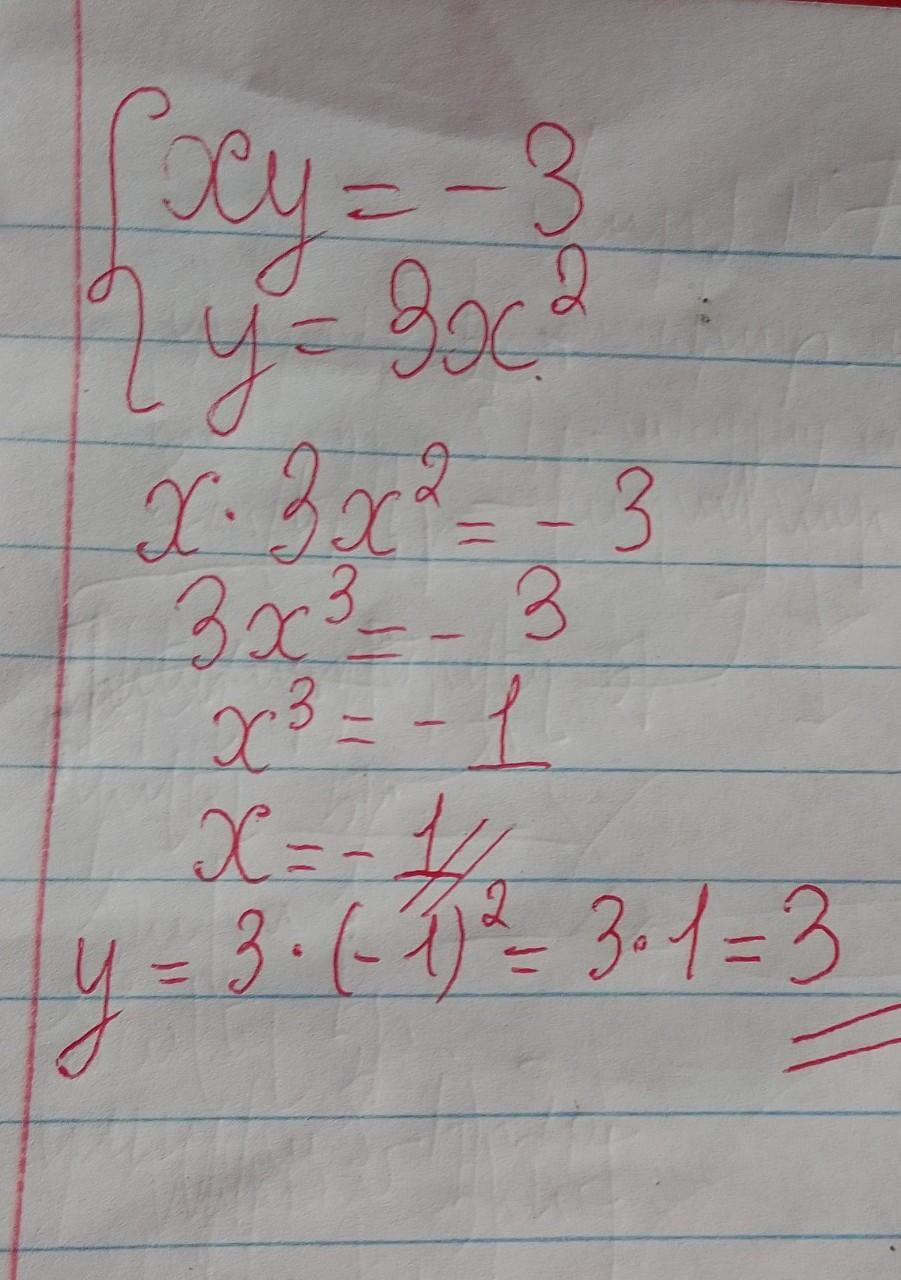 { xy = - 3
y = 3x²
x · 3x² = - 3
3x³ = - 3
x³ = - 1
x = - 1
y = 3 · (- 1)² = 3 · 1 = 3